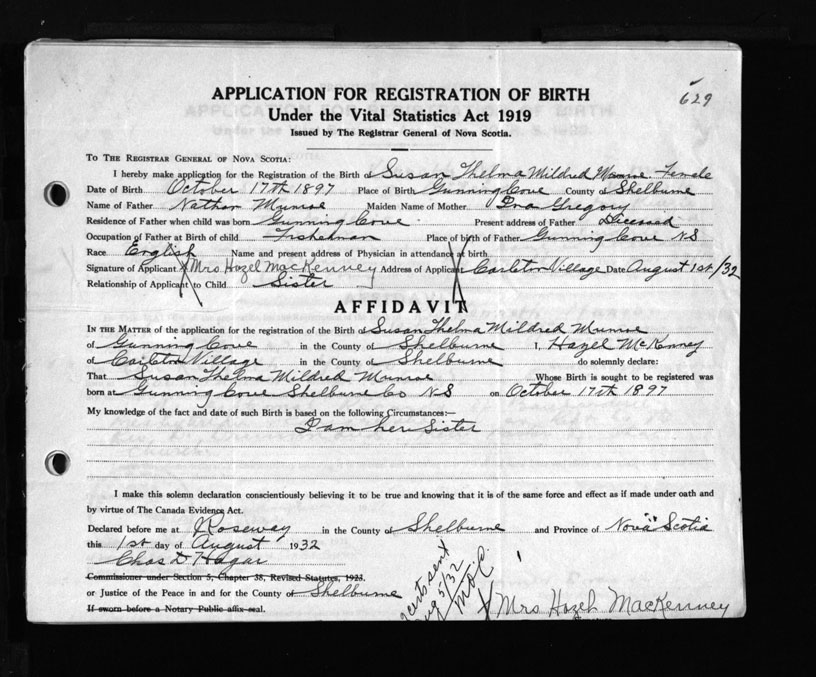 APPLICATION FOR REGISTRATION OF BIRTH
629
Under the Vital Statistics Act 1919
Issued by The Registrar General of Nova Scotia.
TO THE REGISTRAR GENERAL OF NOVA SCOTIA:
I hereby make application for the Registration of the Birth of Susan Thelma Mildred Munroe Female
Date of Birth October 17th 1897 Place of Birth Gunning Cove County of Shelburne
Name of Father Nathan Munroe Maiden Name of Mother Ora Gregory
Residence of Father when child was born Gunning Cove Present address of Father Diceased
Occupation of Father at Birth of child Fisherman Place of birth of Father Gunning Cove N.S
Race English Name and present address of Physician in attendance at birth
Signature of Applicant X Mrs Hazel MacKenney Address of Applicant Carleton Village Date August 1st/32
Relationship of Applicant to Child Sister
AFFIDAVIT
IN THE MATTER of the application for the registration of the Birth of Susan Thelma Mildred Munroe
of Gunning Cove in the County of Shelburne I, Hazel McKenney
of Carleton Village in the County of Shelburne do solemnly declare:
That Susan Thelma Mildred Munroe Whose Birth is sought to be registered was
born at Gunning Cove Shelburne Co N.S on October 17th 1897
My knowledge of the fact and date of such Birth is based on the following Circumstances:—
I am her Sister
I make this solemn declaration conscientiously believing it to be true and knowing that it is of the same force and effect as if made under oath and
by virtue of The Canada Evidence Act.
Declared before me at Roseway in the County of Shelburne and Province of Nova Scotia
this 1st day of August 1932
Chas D Hagar
Commissioner under Section 5, Chapter 38, Revised Statutes, 1923.
or Justice of the Peace in and for the County of Shelburne
If sworn before a Notary Public affix seal.
Certs sent
Aug 5/32
X Mrs Hazel MacKenney